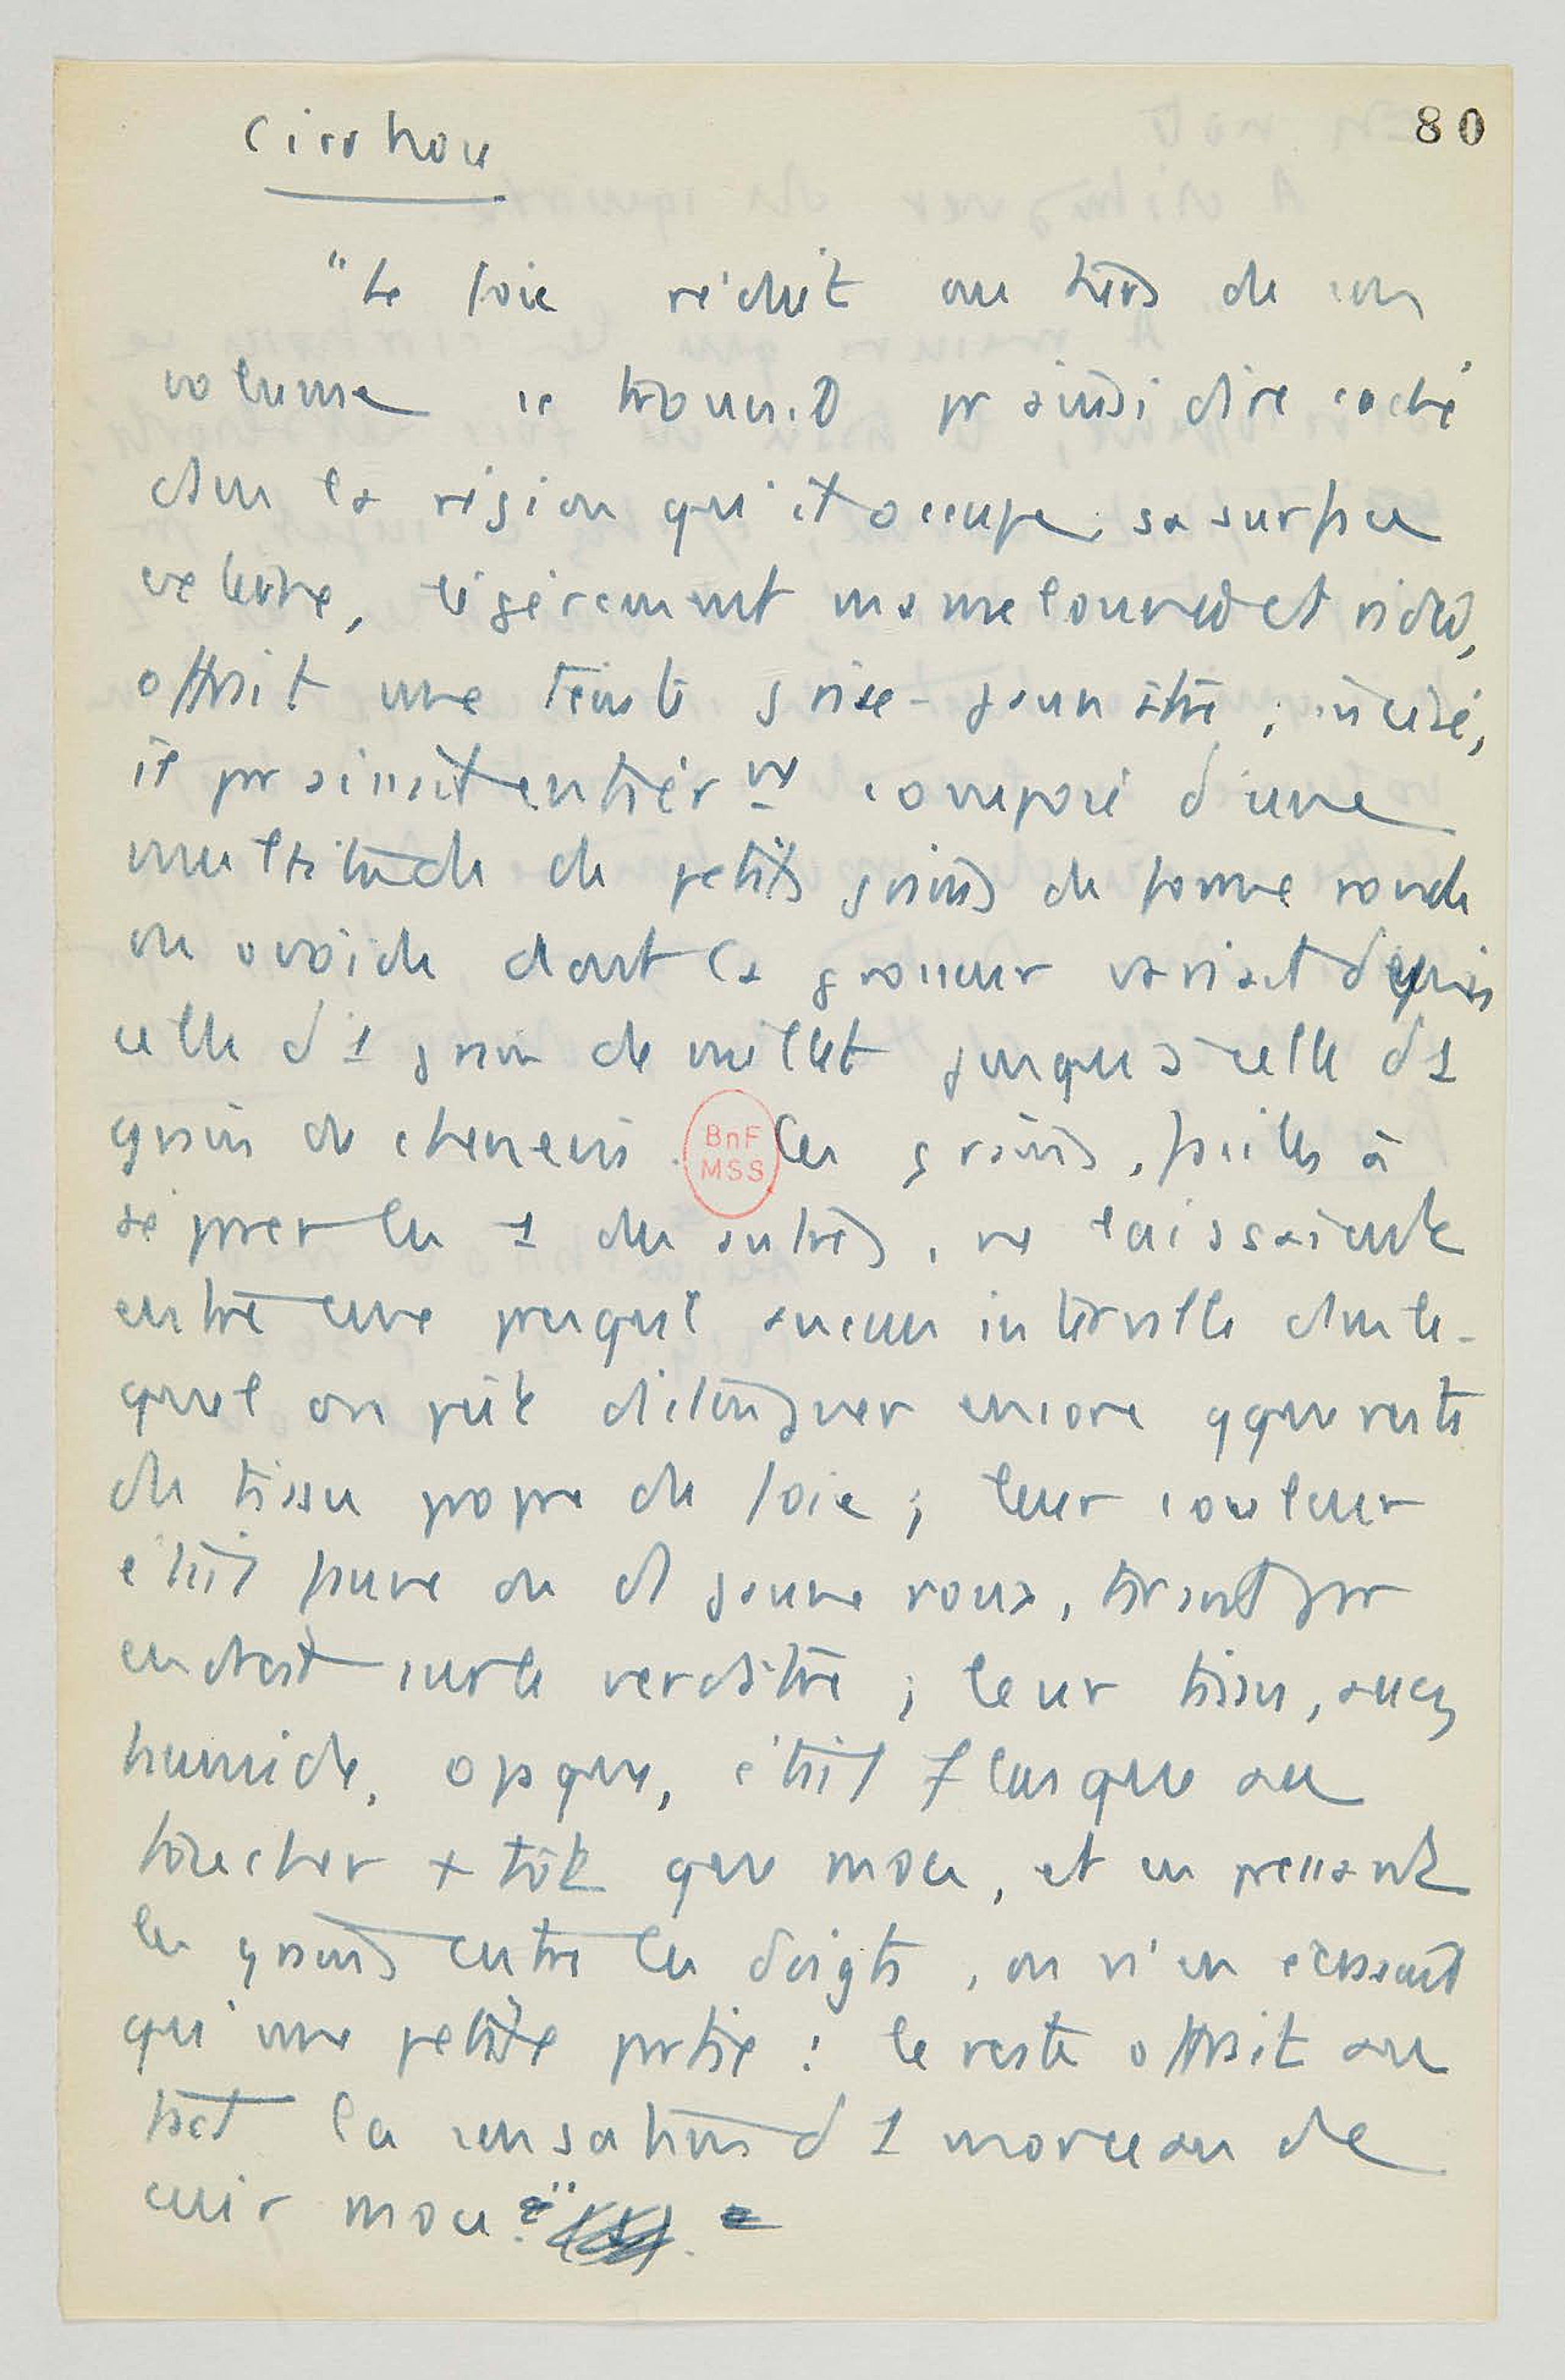 80
Cirrhose
"Le foie réduit au tiers de son
volume se trouvait pr ainsi dire caché
dans la région qu'il occupe ; sa surface
externe, légèrement mamelonnée et ridée,
offrait une teinte grise-jaunâtre ; incisé,
il paraissait entièrnt composé d'une
multitude de petits grains de forme ronde
ou ovoïde dont la grosseur variait depuis
celle d'1 grain de millet jusqu'à celle d'1
grain de chènevis. Ces grains, faciles à
séparer les 1 des autres, ne laissaient
entre eux presque aucun intervalle dans le-
quel on pût distinguer encore qque reste
du tissu propre du foie ; leur couleur
était fauve ou d jaune roux, tirant par
endroit sur le verdâtre ; leur tissu, assez
humide, opaque, était flasque au
toucher + tôt que mou, et en pressant
les grains entre les doigts, on n'en écrasait
qu'une petite partie : le reste offrait au
tact la sensation d'1 morceau de
cuir mou."
BnF
MSS